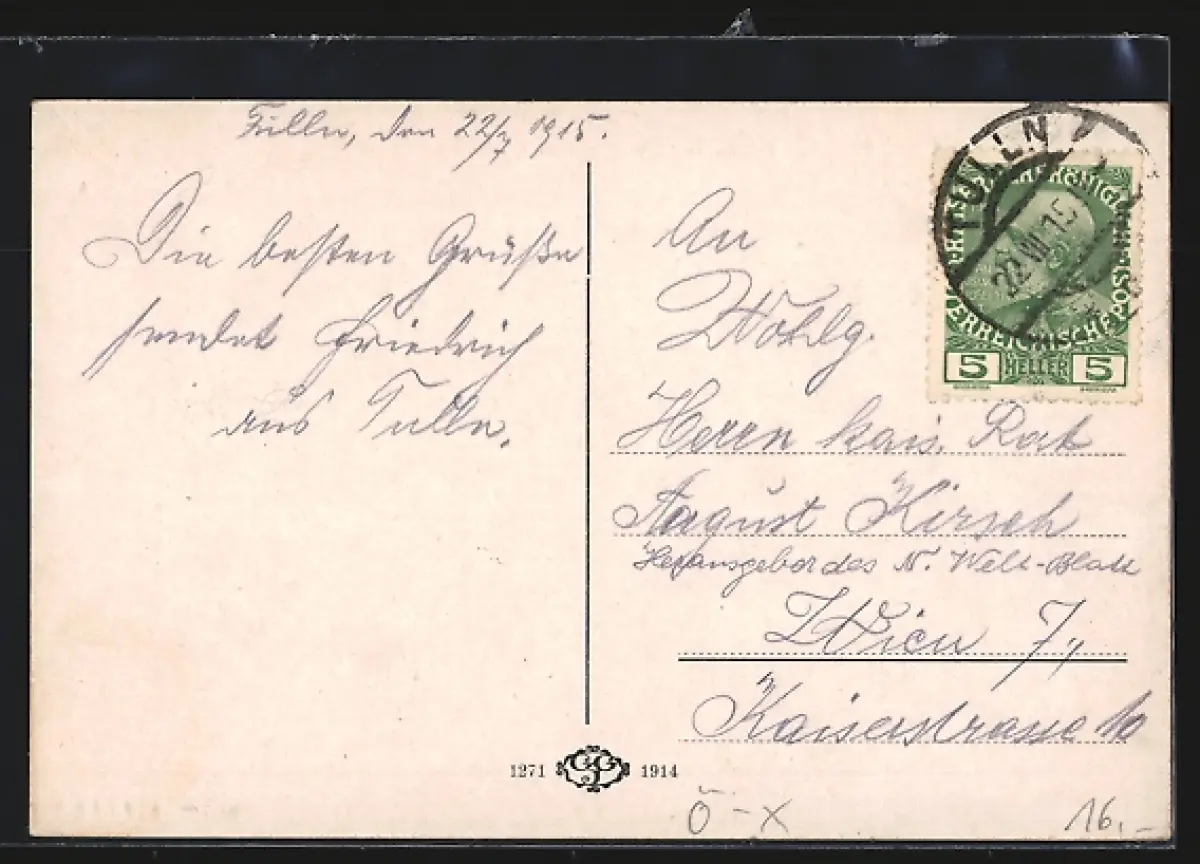 Tulln, den 22/7 1915.
Die besten Grüße
sendet Friedrich
aus Tulln.
An
Wohlg.
Herrn kais. Rat
August Kirsch
Herausgeber des N. Welt-Blatt
Wien 7.,
Kaiserstrasse 10
TULLN
22 VII 15
5 HELLER 5
1271 1914
Ö - X
16.-